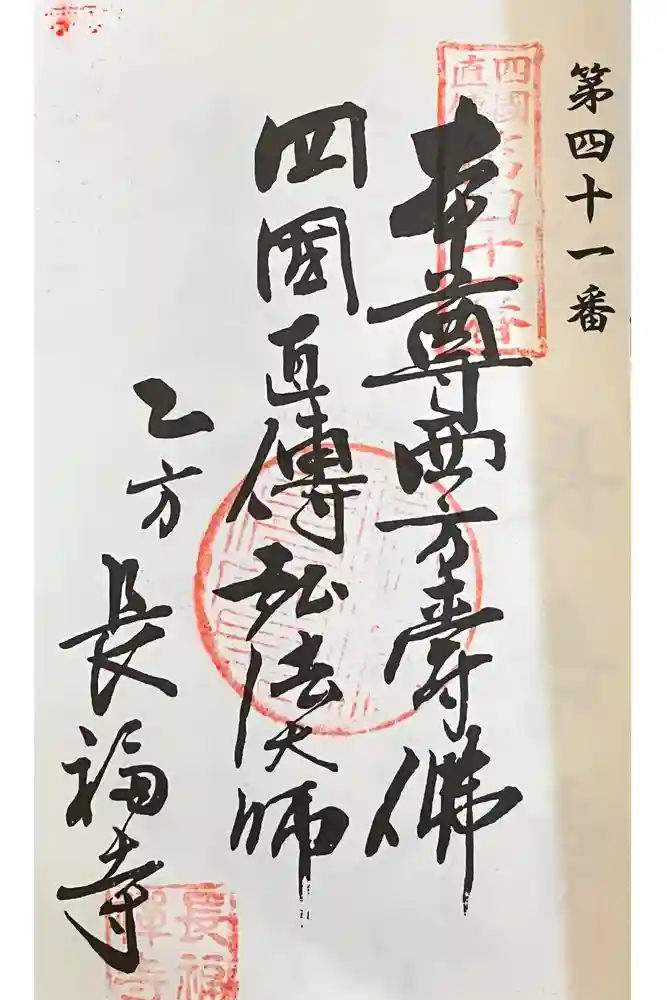 第四十一番
四國直傳
第四十一番
本尊西方壽佛
四國直傳弘法大師
乙方
長福寺
長福禪寺